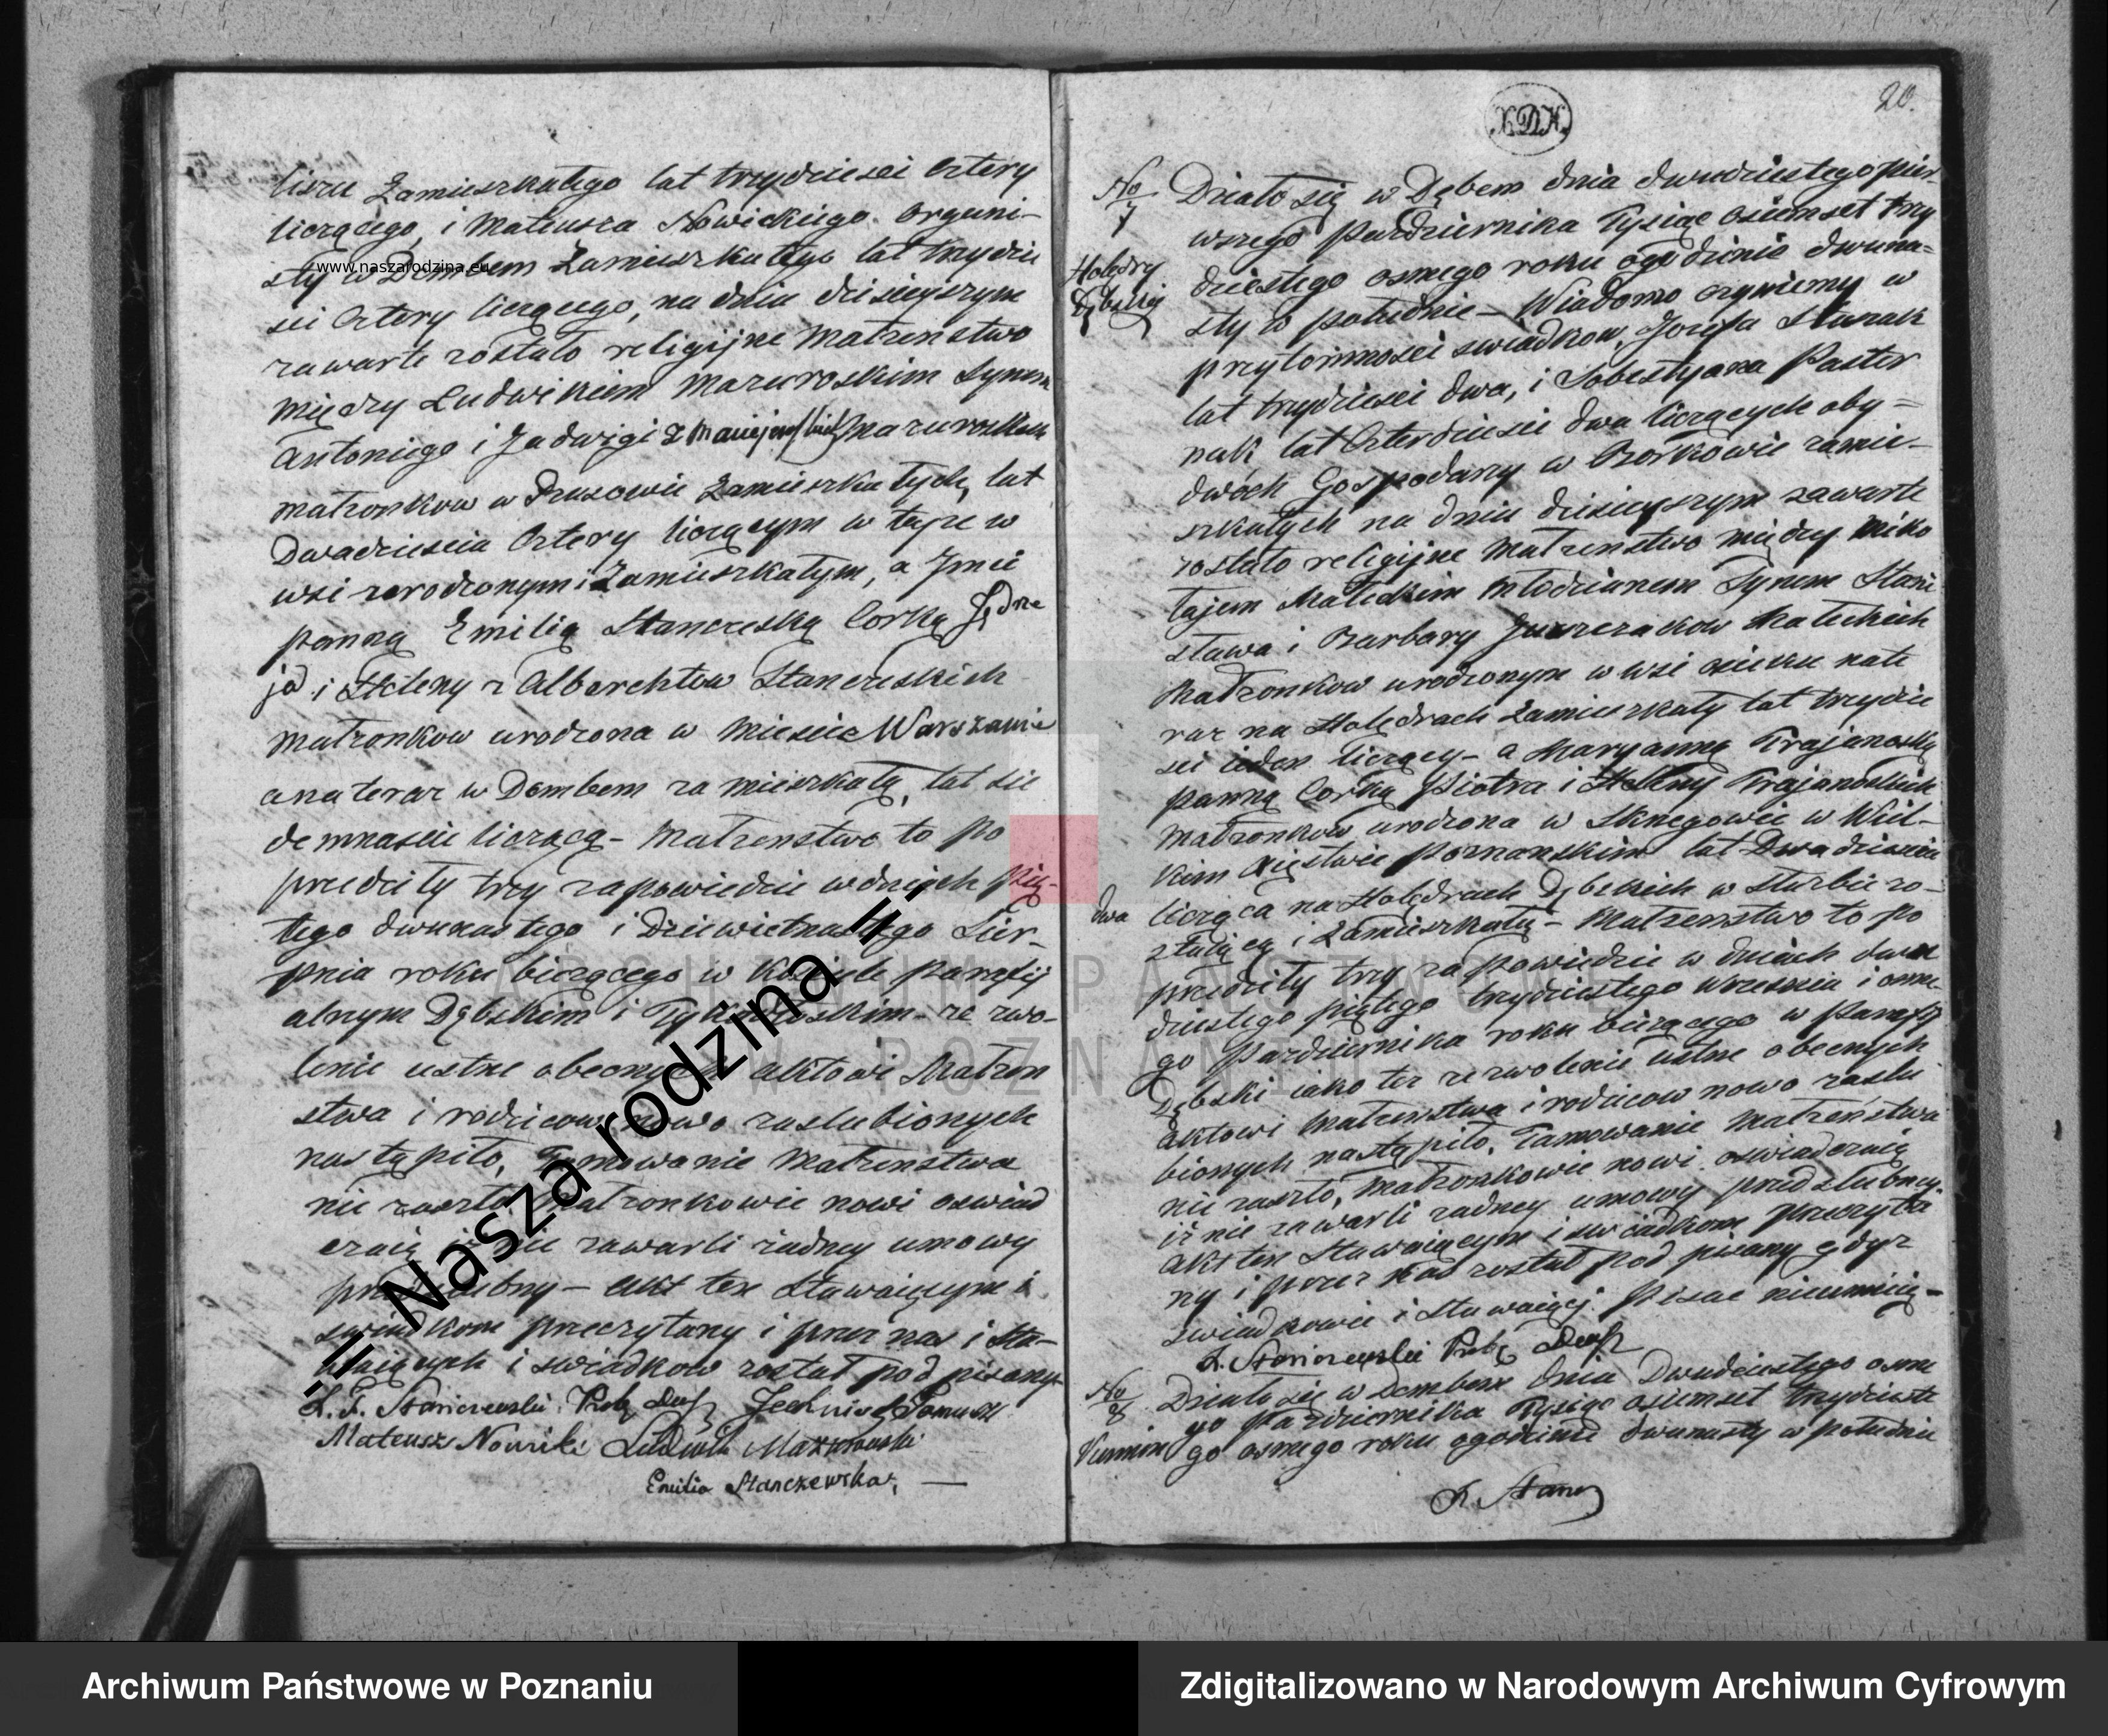 www.naszarodzina.eu
liszu Zamieszkałego lat trzydziesci cztery
liczącego, i Mateusza Nowickiego Organi-
sty w Dembem Zamieszkałego lat trzydzie
sci cztery liczącego, na dniu dzisieyszym
zawarte zostało religijne Małzenstwo
między Ludwikiem Mazuroskim Synem
Antoniego i Jadwigi z Mazuroskich
małzonkow w Prusowie Zamieszkałych, lat
Dwadziescia cztery liczącym w teyze w
wsi zrodzonym i Zamieszkałym, a Jmci
panną Emilią Stanczeską Corką Jędrze
ja i Heleny z Albrechtow Stanczeskich
małzonkow urodzona w Miescie Warszawie
a na teraz w Dembem za mieszkałą, lat sie
demnascie liczącą - Małzenstwo to po
przedziły trzy zapowiedzie w dniach Pią-
tego dwunastego i Dziewietnastego Sier-
pnia roku bieżącego w Kosciele parafij
alnym Dębskim i Tykadłoskim - ze zwo-
lenie ustne obecnych aktowi Małzen
stwa i rodzicow nowo zaslubionych
nastąpiło, Tamowanie Małzenstwa
nie zaszło Małzonkowie nowi oswiad
czaią iż nie zawarli żadney umowy
przedslubny - Akt ten Stawaiącym i
swiadkom przeczytany i przez nas i sta-
waiących i swiadkow został pod pisany
X. F. Stanczewski Prob. Deb. Tomasz
Mateusz Nowicki Ludwik Mazurowski
Emilia Stanczewska,
„ Nasza rodzina „
XDK
20.
No 7
Holędry
Dębskie
Działo się w Dębem dnia dwudziestego pier
wszego Pazdziernika Tysiąc osiemset trzy
dziestego osmego roku o godzinie dwuna=
sty w południe - Wiadomo czyniemy w
przytomnosci swiadkow, Jozefa Sturak
lat trzydziesci dwa, i Sobestyana Paster
nak lat Czterdziesci dwa liczących oby=
dwóch Gospodarzy w Borkowie zamie-
szkałych na dniu dzisieyszym zawarte
zostało religijne Małzenstwo między Miko
łajem Małeckim Młodzianem Synem Stani
sława i Barbary Małeckich
Małzonkow urodzonym w wsi osieku na te
raz na Holędrach Zamieszkały lat trzydzie
sci ieden liczący - a Maryanną Trajanoską
panną Corką Piotra i Heleny Trajanoskich
Małzonkow urodzona w Sknegowie w Wiel-
kim Xięstwie Poznanskim lat Dwadziescia
dwa licząca na Holędrach Dębskich w sturbie zo-
stającą i Zamieszkałą - Małzenstwo to po
przedziły trzy zapowiedzie w dniach dwu
dziestego piątego trzydziestego Wrzesnia i osme
go Pazdziernika roku bieżącego w Parafij
Dębski iako tez zezwolenie ustne obecnych
aktowi Małzenstwa i rodzicow nowo zaslu
bionych nastąpiło, Tamowanie Małzeństwa
nie zaszło, Małzonkowie nowi oswiadczaią
iż nie zawarli żadney umowy przedslubney
Akt ten Stawaiącym i swiadkom przeczyta
ny i przez nas został pod pisany gdyz
swiadkowie i stawaiący Pisac nieumieią -
X. Stanczewski Prob. Deb
No 8
Kuznin
Działo się w Dembem Dnia Dwudziestego osme
go Pazdziernika Tysiąc osiemset trzydzieste
go osmego roku o godzinie dwunasty w południe
X. Stan
ARCHIWUM PAŃSTWOWE
W POZNANIU
Archiwum Państwowe w Poznaniu
Zdigitalizowano w Narodowym Archiwum Cyfrowym